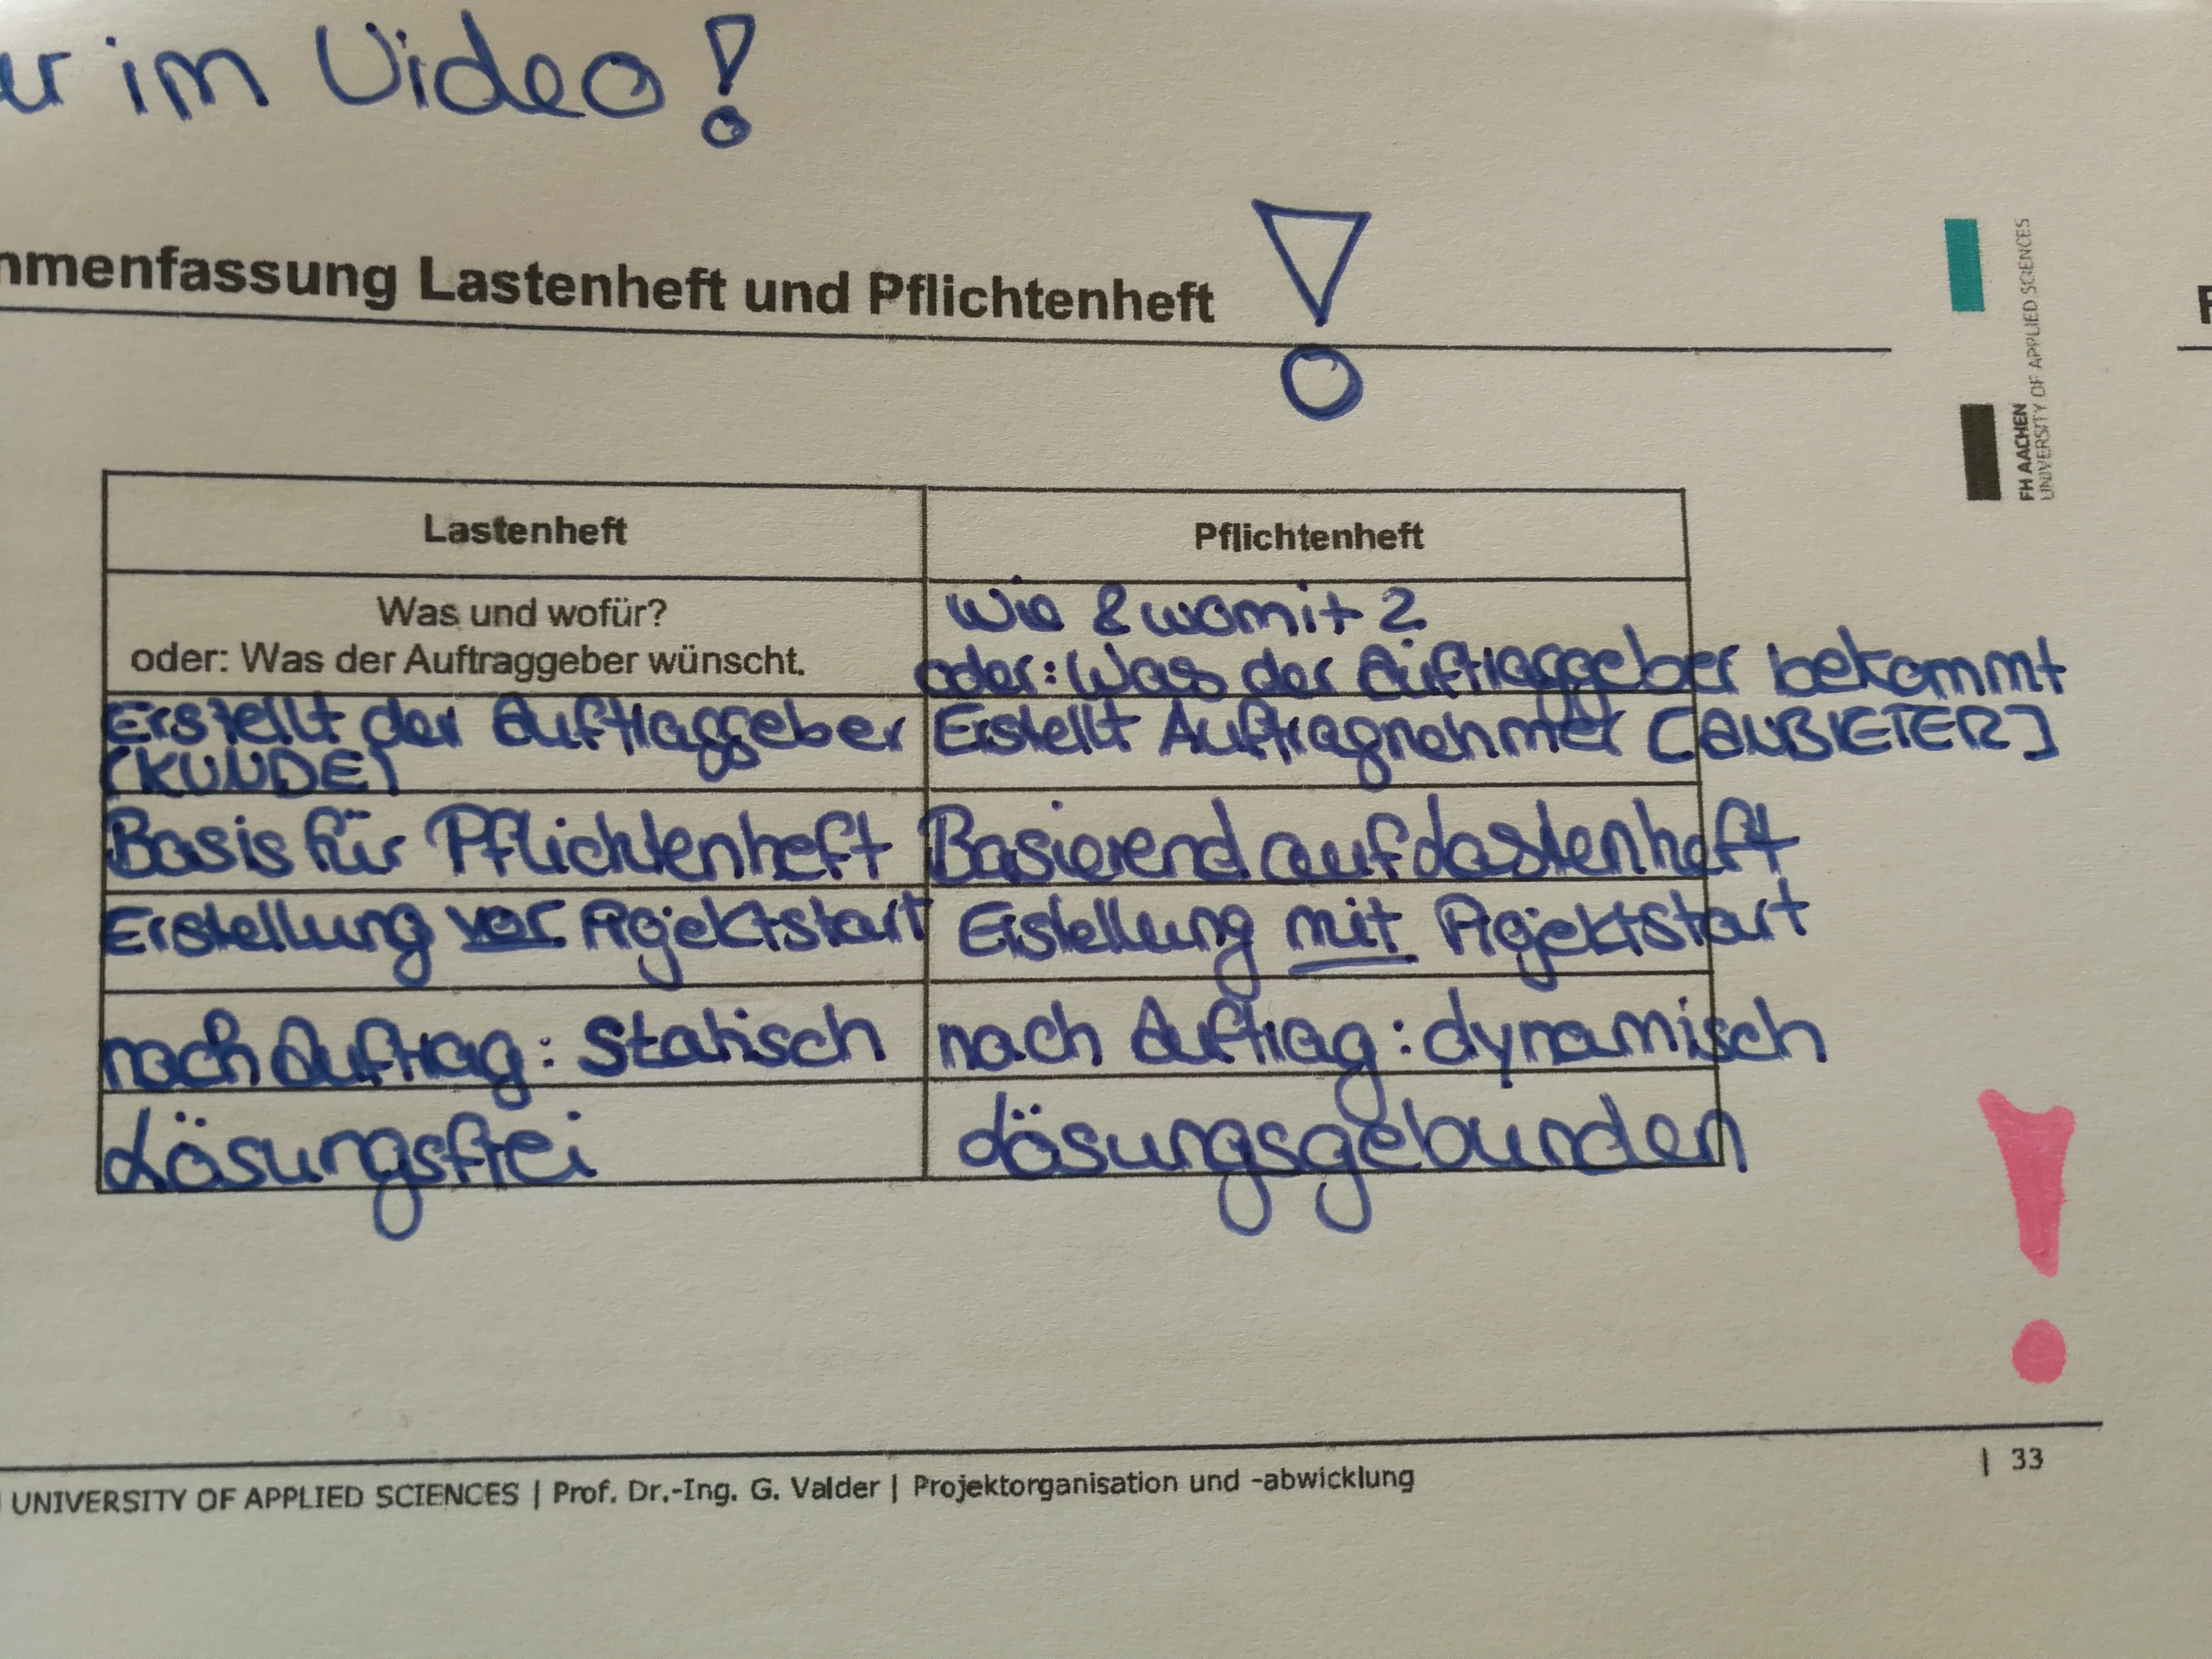 im Video!
mmenfassung Lastenheft und Pflichtenheft
FH AACHEN
UNIVERSITY OF APPLIED SCIENCES
Lastenheft
Pflichtenheft
Was und wofür?
oder: Was der Auftraggeber wünscht.
Wie & womit?
oder: Was der Auftraggeber bekommt
Erstellt der Auftraggeber
(KUNDE)
Erstellt Auftragnehmer [ANBIETER]
Basis für Pflichtenheft
Basierend auf Lastenheft
Erstellung vor Projektstart
Erstellung mit Projektstart
nach Auftrag: Statisch
nach Auftrag: dynamisch
Lösungsfrei
Lösungsgebunden
!
UNIVERSITY OF APPLIED SCIENCES | Prof. Dr.-Ing. G. Valder | Projektorganisation und -abwicklung
| 33